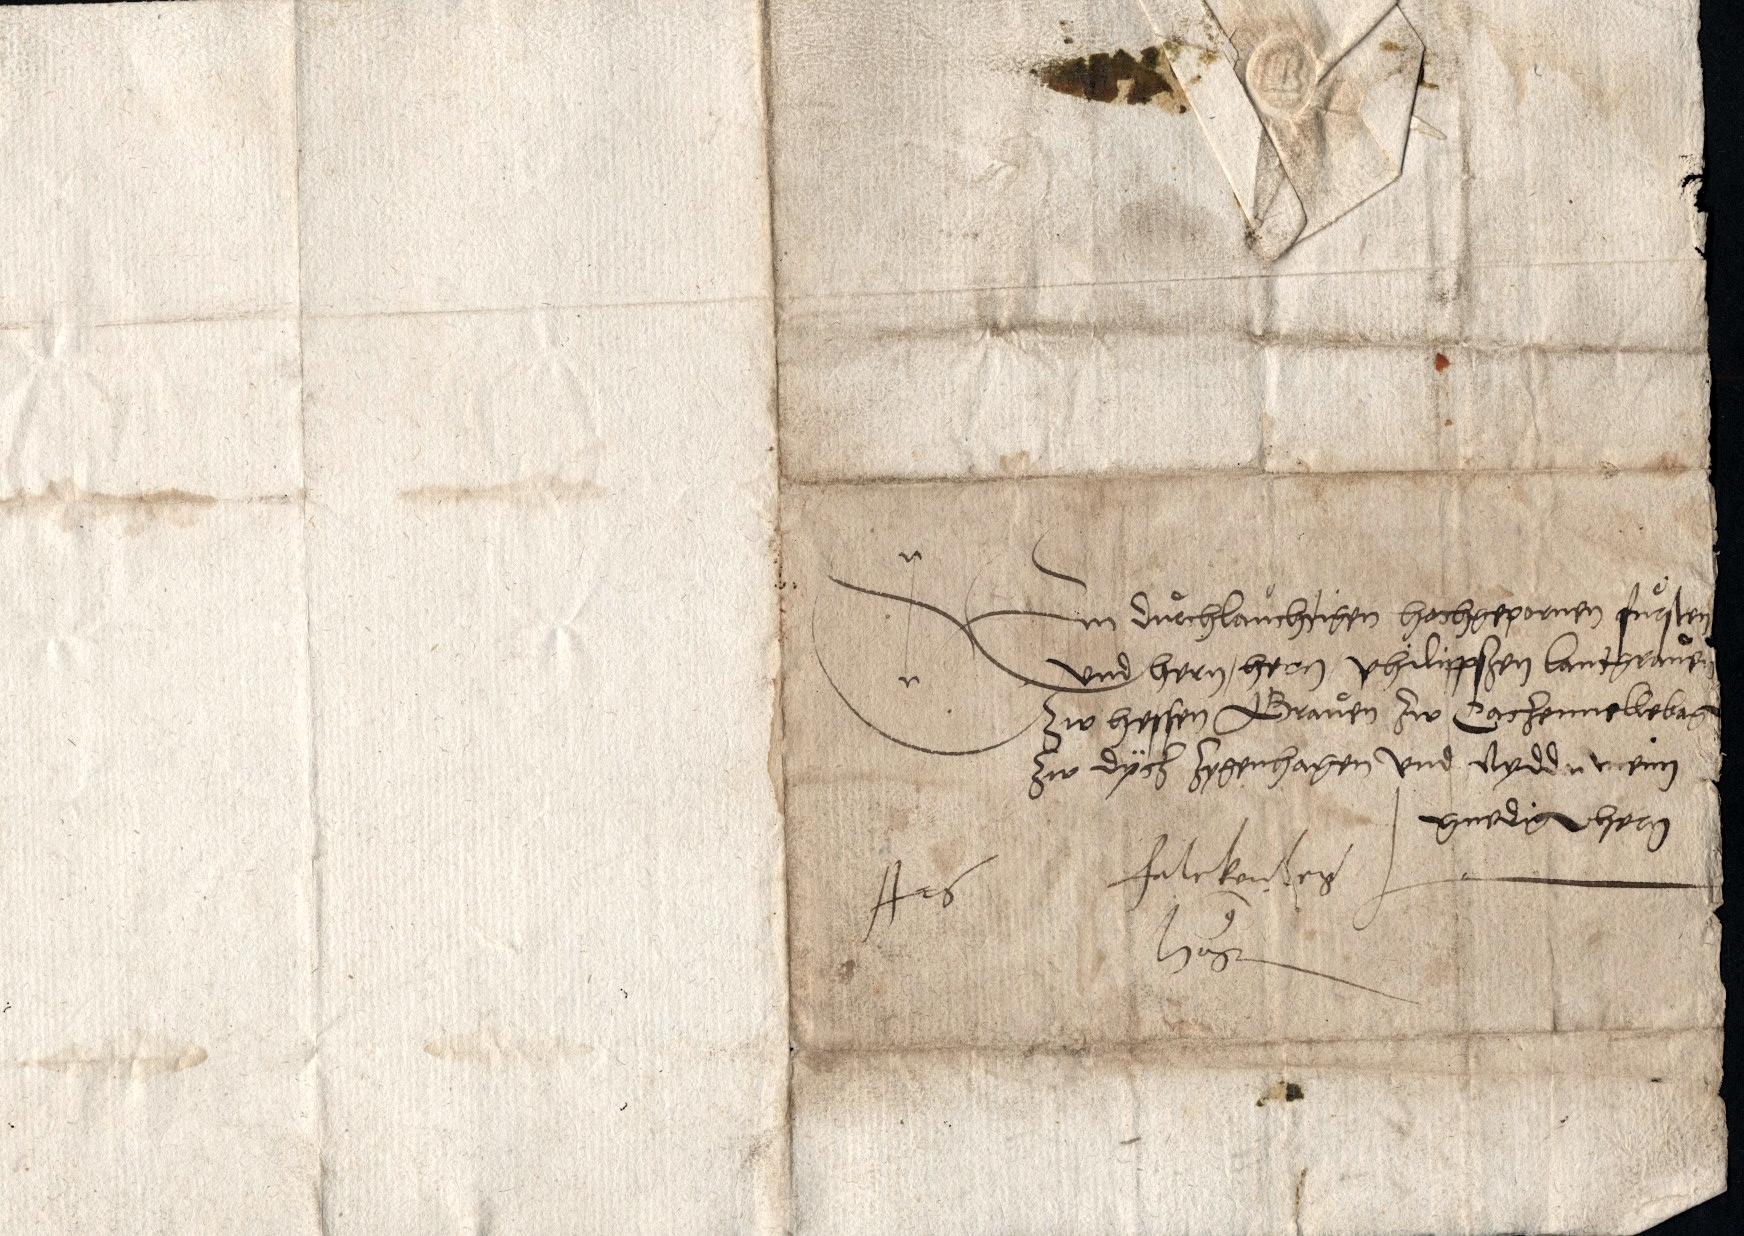 Dem durchlauchtigen hochgepornen fursten
und hern hern philippszen lantgraven
zw hessen Graven zw Catzennellebog
zw dÿtz zygenhagen und nydd meim
gnedig hern
falckenberg